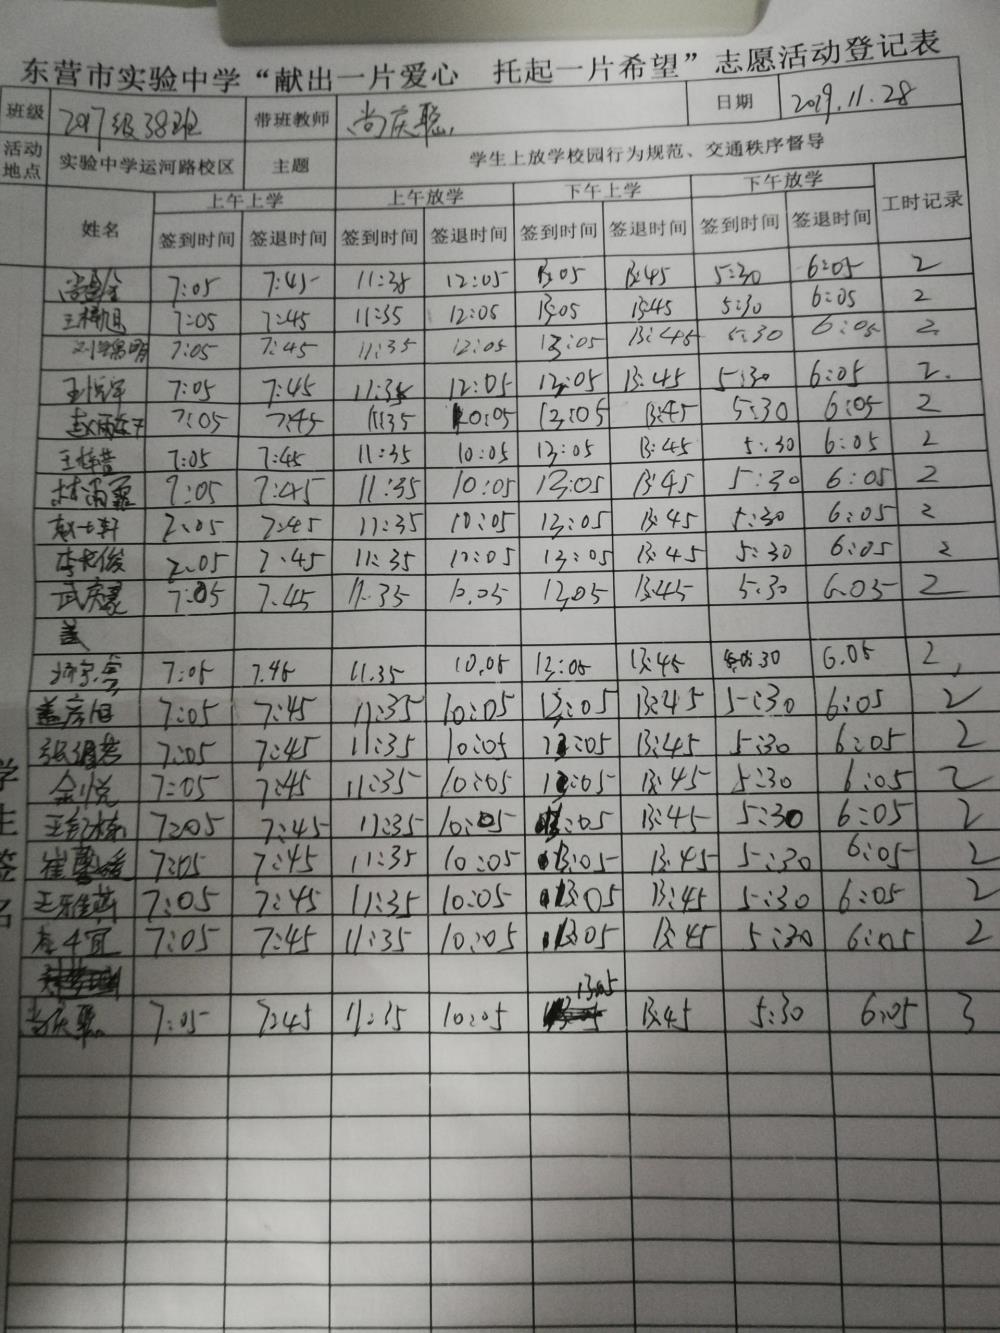 东营市实验中学“献出一片爱心 托起一片希望”志愿活动登记表
班级 2017级38班 带班教师 尚庆聪 日期 2019.11.28
活动地点 实验中学运河路校区 主题 学生上放学校园行为规范、交通秩序督导
姓名 上午上学 上午放学 下午上学 下午放学 工时记录
签到时间 签退时间 签到时间 签退时间 签到时间 签退时间 签到时间 签退时间
7:05 7:45 11:35 12:05 13:05 13:45 5:30 6:05 2
7:05 7:45 11:35 12:05 13:05 13:45 5:30 6:05 2
7:05 7:45 11:35 12:05 13:05 13:45 5:30 6:05 2.
7:05 7:45 11:35 12:05 13:05 13:45 5:30 6:05 2.
7:05 7:45 11:35 10:05 13:05 13:45 5:30 6:05 2
7:05 7:45 11:35 10:05 13:05 13:45 5:30 6:05 2
7:05 7:45 11:35 10:05 13:05 13:45 5:30 6:05 2
7:05 7:45 11:35 10:05 13:05 13:45 5:30 6:05 2
李长俊 7:05 7:45 11:35 10:05 13:05 13:45 5:30 6:05 2
武庆豪 7:05 7.45 11.35 10.05 13.05 13:45 5:30 6.05 2
盖
7:05 7.45 11.35 10.05 13:05 13:45 30 6.05 2
盖彦旭 7:05 7:45 11:35 10:05 13:05 13:45 5:30 6:05 2
7:05 7:45 11:35 10:05 13:05 13:45 5:30 6:05 2
金悦 7:05 7:45 11:35 10:05 13:05 13:45 5:30 6:05 2
7:05 7:45 11:35 10:05 13:05 13:45 5:30 6:05 2
7:05 7:45 11:35 10:05 13:05 13:45 5:30 6:05 2
王雅茜 7:05 7:45 11:35 10:05 13:05 13:45 5:30 6:05 2
李千宜 7:05 7:45 11:35 10:05 13:05 13:45 5:30 6:05 2
尚庆聪 7:05 7:45 11:35 10:05 13:05 13:45 5:30 6:05 3
学生签名